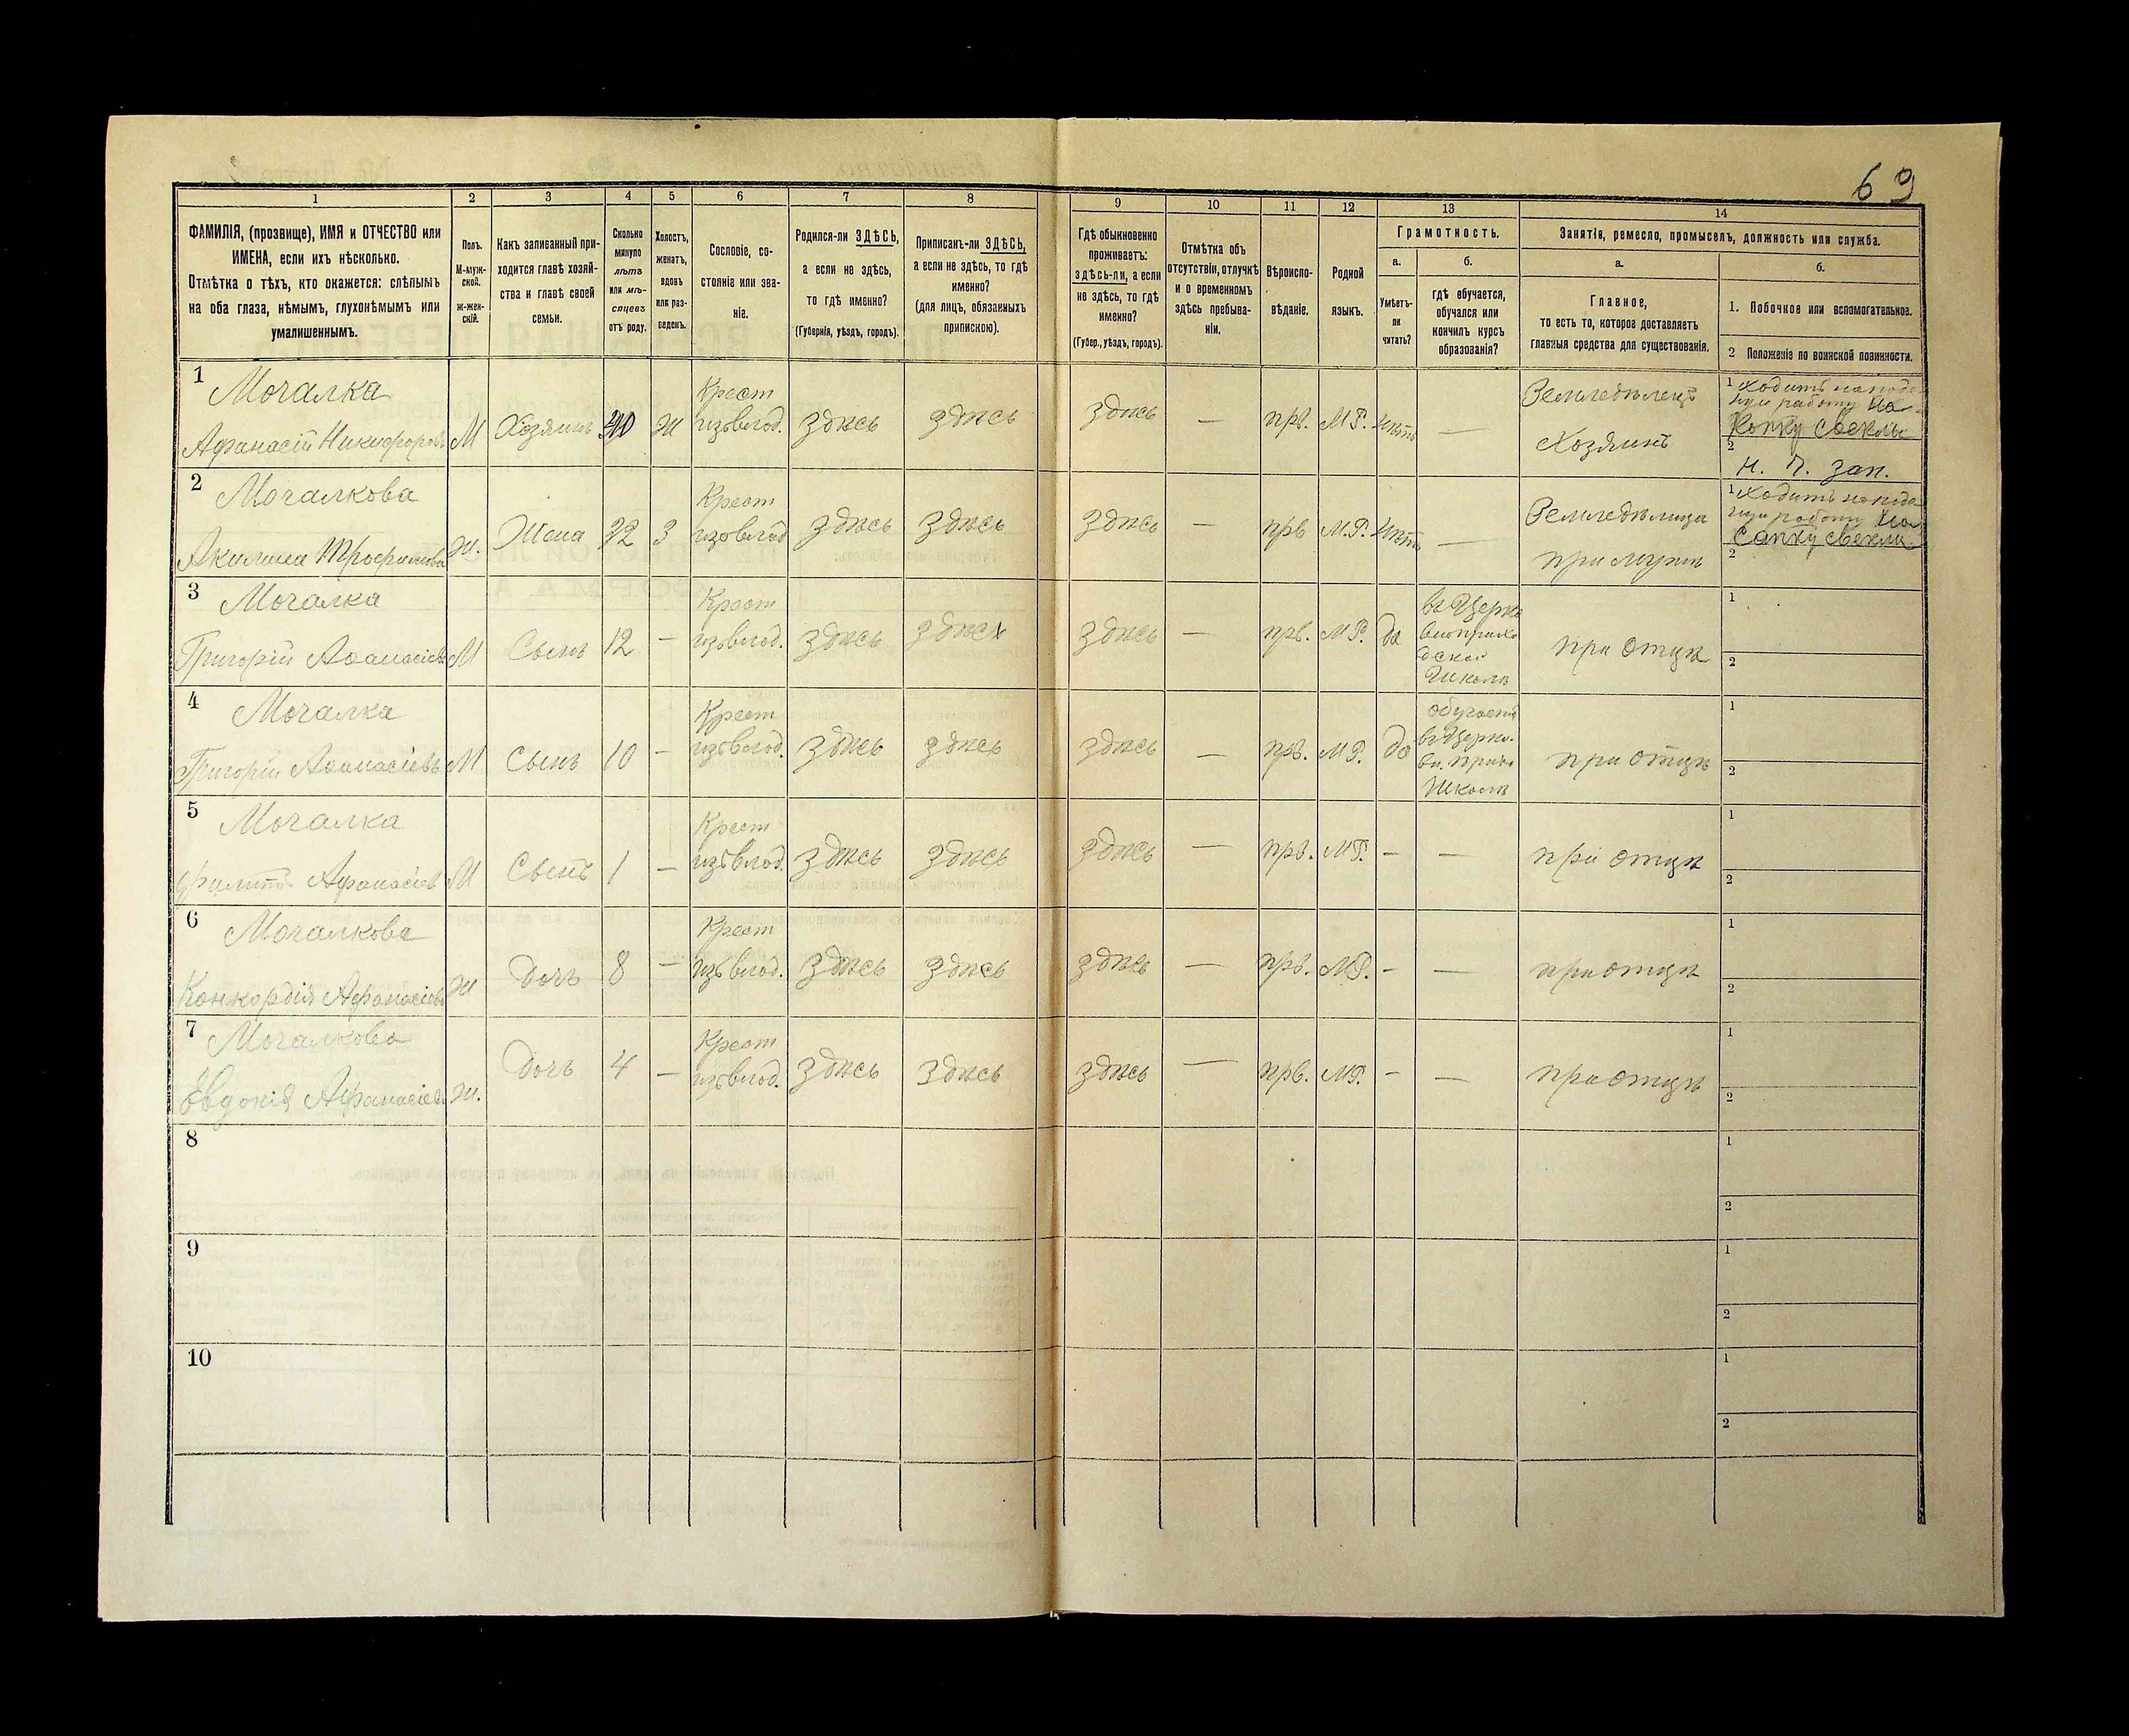 69
1 2 3 4 5 6 7 8 9 10 11 12 13 14
ФАМИЛІЯ, (прозвище), ИМЯ и ОТЧЕСТВО или
ИМЕНА, если ихъ нѣсколько.
Отмѣтка о тѣхъ, кто окажется: слѣпымъ
на оба глаза, нѣмымъ, глухонѣмымъ или
умалишеннымъ.
Полъ.
М-муж-
ской.
Ж-жен-
скій.
Какъ записанный при-
ходится главѣ хозяй-
ства и главѣ своей
семьи.
Сколько
минуло
лѣтъ
или мѣ-
сяцевъ
отъ роду.
Холостъ,
женатъ,
вдовъ
или раз-
веденъ.
Сословіе, со-
стояніе или зва-
ніе.
Родился-ли ЗДѢСЬ,
а если не здѣсь,
то гдѣ именно?
(Губернія, уѣздъ, городъ).
Приписанъ-ли ЗДѢСЬ,
а если не здѣсь, то гдѣ
именно?
(для лицъ, обязанныхъ
припискою).
Гдѣ обыкновенно
проживаетъ:
здѣсь-ли, а если
не здѣсь, то гдѣ
именно?
(Губер., уѣздъ, городъ).
Отмѣтка объ
отсутствіи, отлучкѣ
и о временномъ
здѣсь пребыва-
ніи.
Вѣроиспо-
вѣданіе.
Родной
языкъ.
Грамотность.
а.
Умѣетъ-
ли
читать?
б.
гдѣ обучается,
обучался или
кончилъ курсъ
образованія?
Занятіе, ремесло, промыселъ, должность или служба.
а.
Главное,
то есть то, которое доставляетъ
главныя средства для существованія.
б.
1. Побочное или вспомогательное.
2 Положеніе по воинской повинности.
1 Мочалка
Афанасій Никифоровъ М Хозяинъ 40 Ж Крест
изъ влад. здѣсь здѣсь здѣсь — прв. М.Р. нѣтъ — Земледѣлецъ
Хозяинъ
1 Ходитъ на поде-
работу на
Копку свеклы
2 Н. П. зап.
2 Мочалкова
Акилина Трофимова ж. Жена 32 З Крест
изъ влад здѣсь здѣсь здѣсь — прв М.Р. нѣтъ — Земледѣлица
при мужѣ
1 Ходитъ на поде-
работу на
Сапку свеклы
2
3 Мочалка
Григорій Афанасіевъ М Сынъ 12 — Крест
изъ влад. здѣсь здѣсь здѣсь — прв. М.Р. да
въ Церко
вноприхо
дской
Школѣ
при отцѣ
1
2
4 Мочалка
Григорій Афанасіевъ М Сынъ 10 — Крест
изъ влад. здѣсь здѣсь здѣсь — прв. М.Р. да
обучается
въ Церко.
вн. прихо
Школѣ
при отцѣ
1
2
5 Мочалка
Филиппъ Афанасіев М Сынъ 1 — Крест
изъ влад. здѣсь здѣсь здѣсь — прв. М.Р. — — при отцѣ
1
2
6 Мочалкова
Конкордія Афанасіева ж Дочь 8 — Крест
изъ влад. здѣсь здѣсь здѣсь — прв. М.Р. — — при отцѣ
1
2
7 Мочалкова
Евдокія Афанасіева ж. Дочь 4 — Крест
изъ влад. здѣсь здѣсь здѣсь — прв. М.Р. — — при отцѣ
1
2
8
1
2
9
1
2
10
1
2